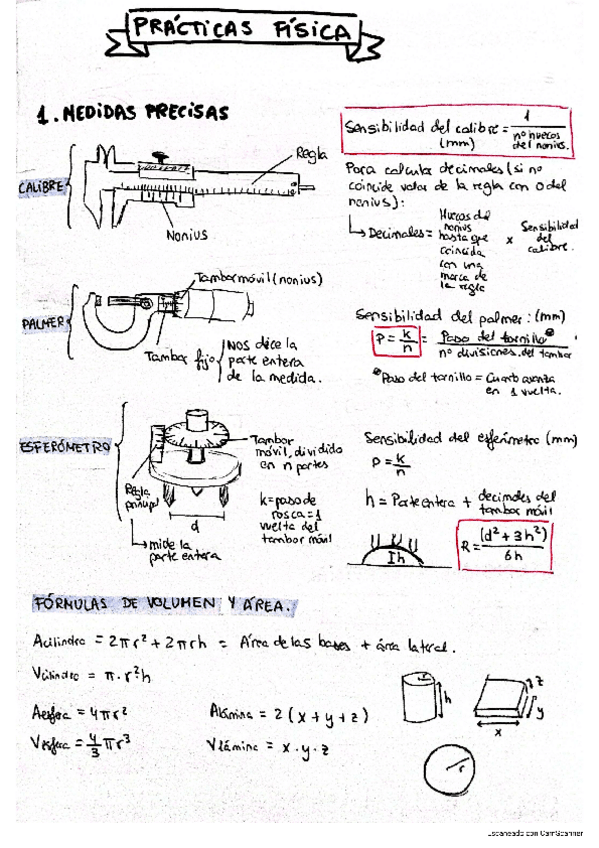 PRÁCTICAS FÍSICA
1. MEDIDAS PRECISAS
Sensibilidad del calibre = 1 / nº huecos del nonius.
(mm)
CALIBRE
Regla
Nonius
Para calcular decimales (si no
coincide valor de la regla con 0 del
nonius):
Decimales = Huecos del nonius hasta que coincida con una marca de la regla x Sensibilidad del calibre.
PALMER
Tambor móvil (nonius)
Tambor fijo
Nos dice la
parte entera
de la medida.
Sensibilidad del palmer: (mm)
P = k/n = Paso del tornillo* / nº divisiones del tambor
*Paso del tornillo = Cuanto avanza
en 1 vuelta.
ESFERÓMETRO
Tambor
móvil, dividido
en n partes
Regla
principal
d
mide la
parte entera
k = paso de
rosca = 1
vuelta del
tambor móvil
Sensibilidad del esferímetro (mm)
P = k/n
h = Parte entera + decimales del
tambor móvil
Ih
R = (d² + 3h²) / 6h
FÓRMULAS DE VOLUMEN Y ÁREA.
Acilindro = 2πr² + 2πrh = Área de las bases + área lateral.
Vcilindro = π · r² · h
Aesfera = 4πr²
Alámina = 2(x + y + z)
Vesfera = 4/3 πr³
Vlámina = x · y · z
r
h
z
y
x
r
Escaneado con CamScanner